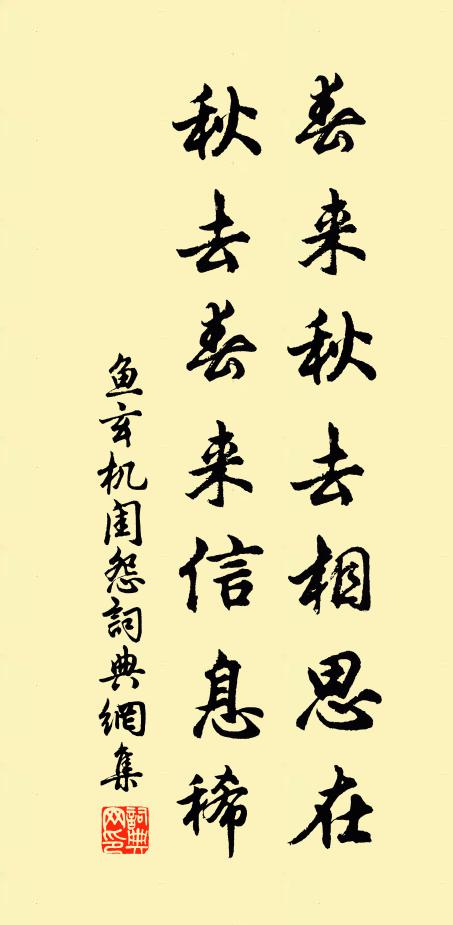 春来秋去相思在
秋去春来信息稀
鱼玄机闺怨詞典網集
詞典网印